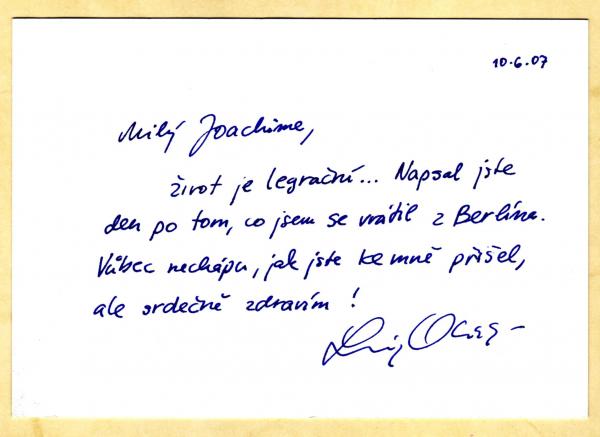 10.6.07
Milý Joachime,
život je legrační... Napsal jste
den po tom, co jsem se vrátil z Berlína.
Vůbec nechápu, jak jste ke mně přišel,
ale srdečně zdravím!